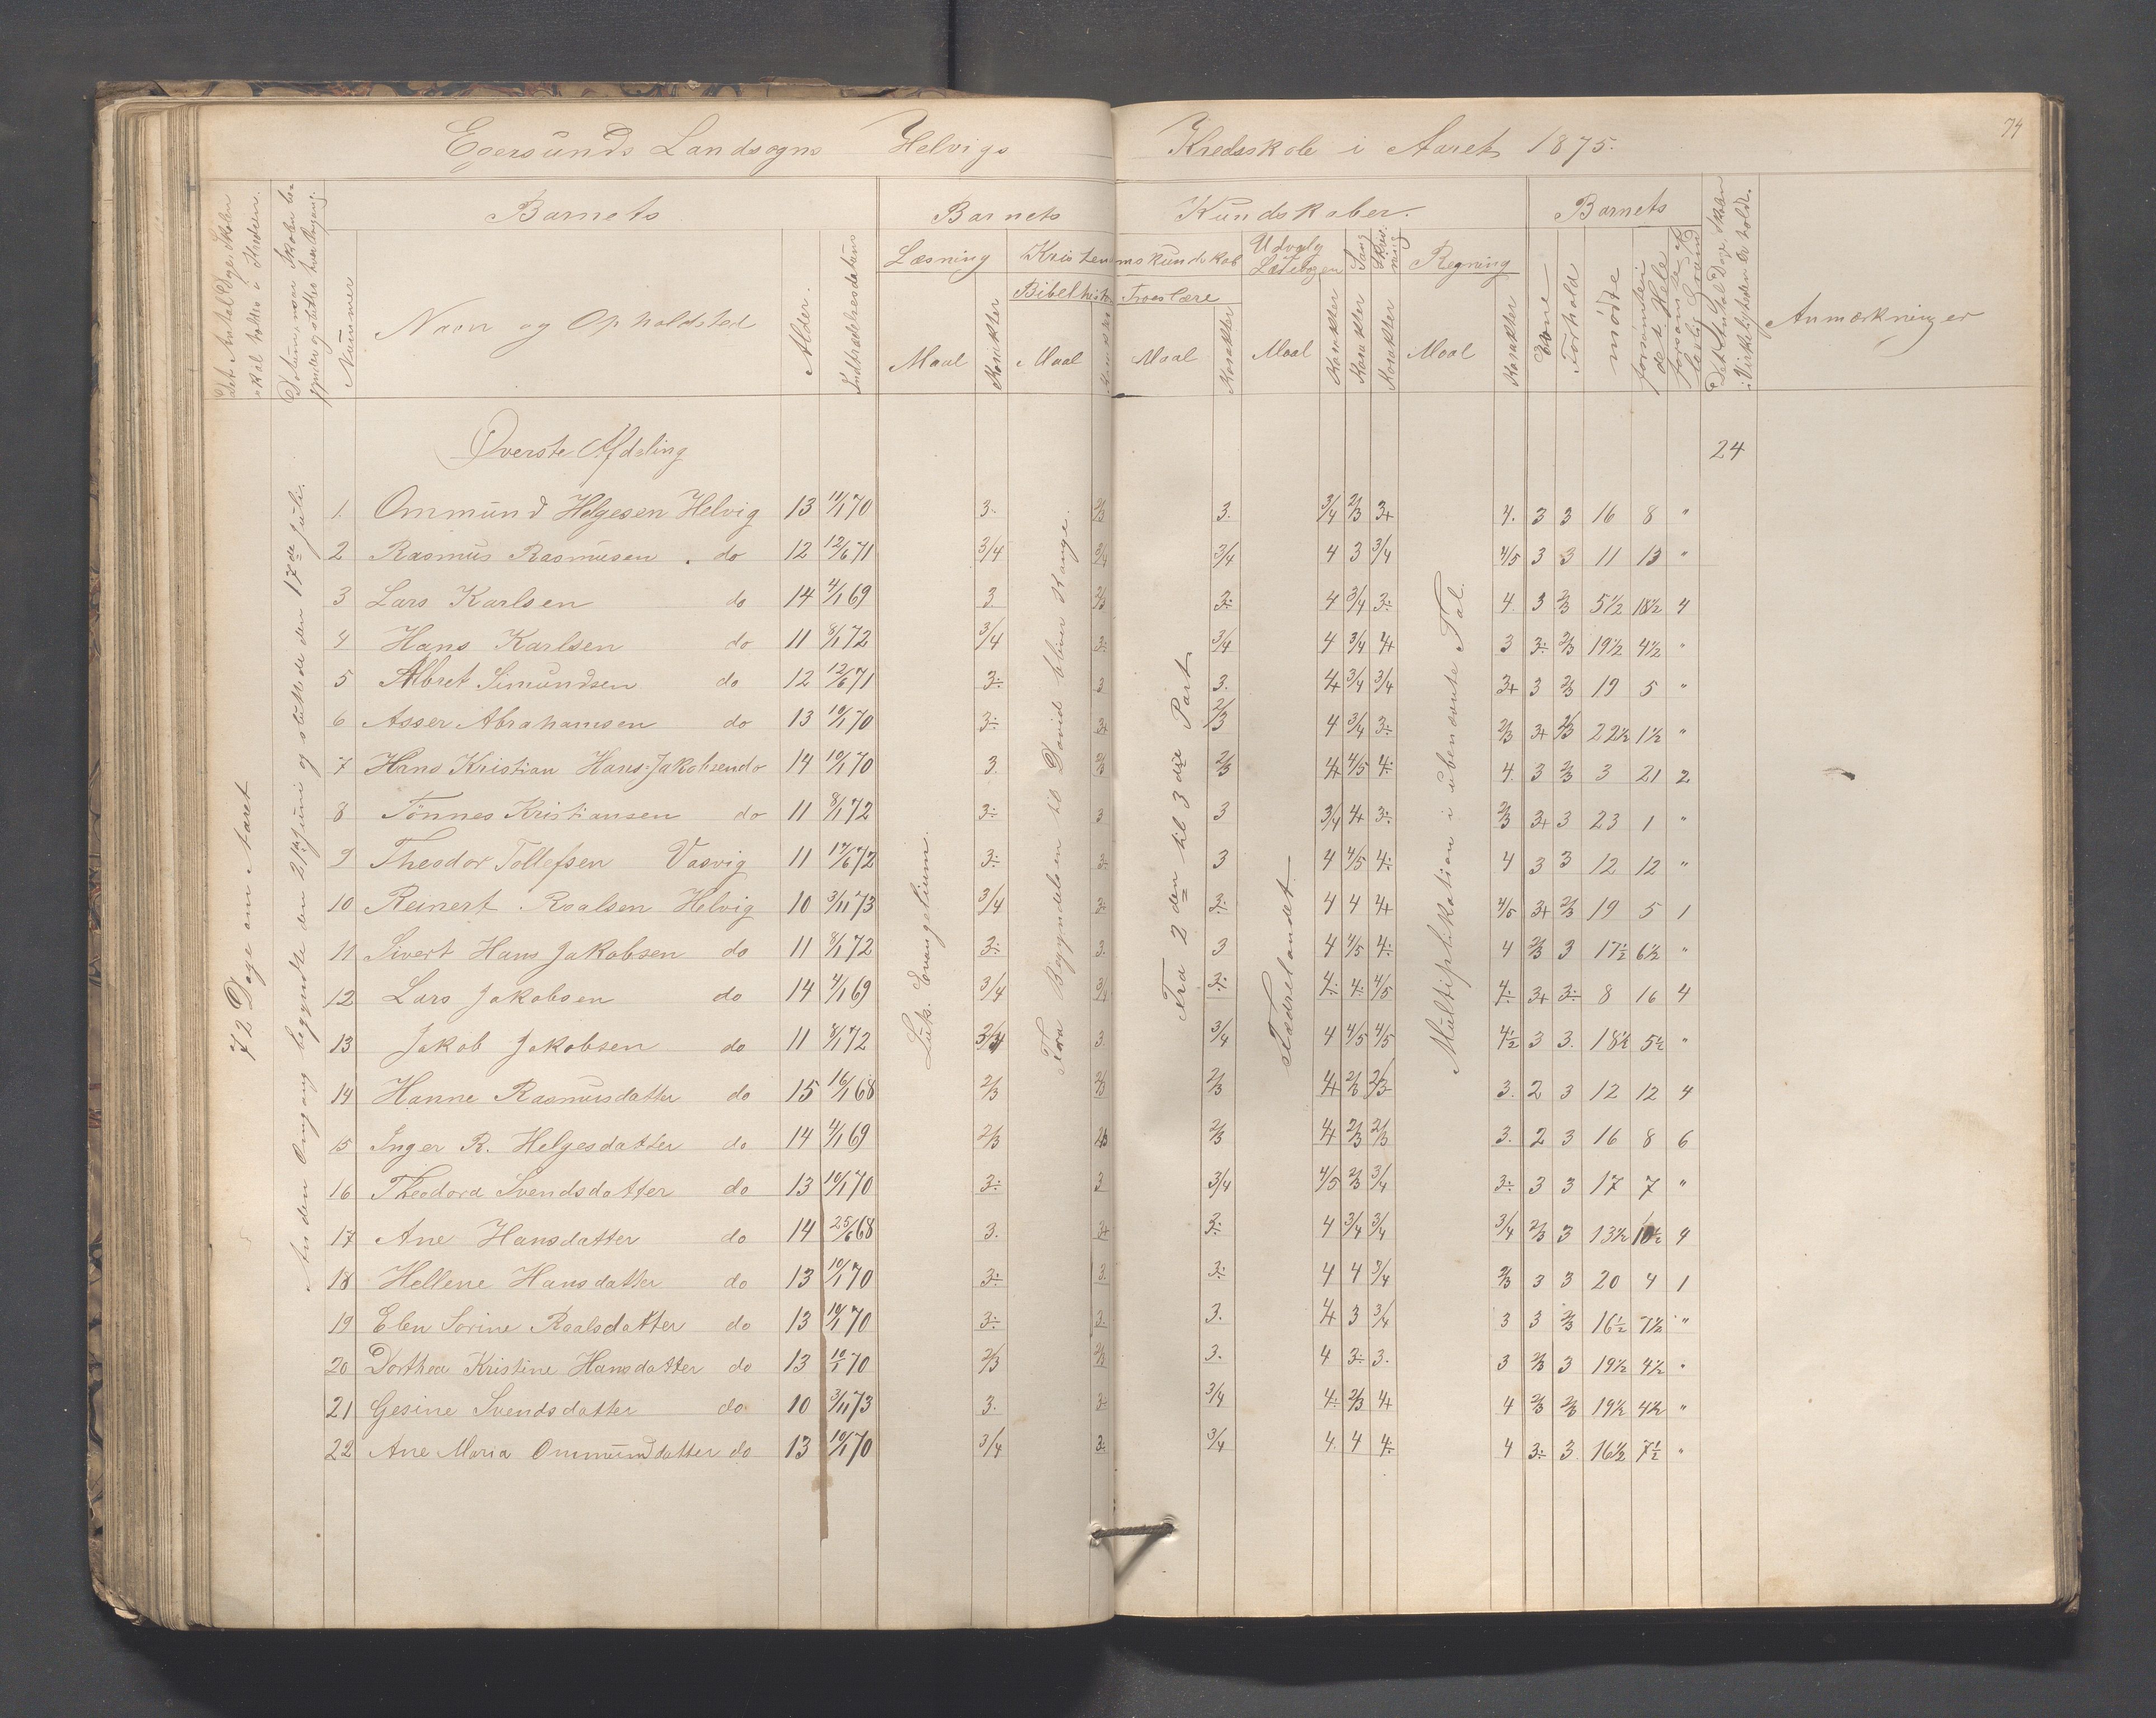 74
Egersunds Landsogns Helvigs Kredsskole i Aaret 1875.
Det Antal Dage Skolen skal holdes i Kredsen.
Datum, naar Skolen begynder og sluttes hver Omgang.
Nummer
Barnets
Navn og Opholdsted
Alder.
Indtrædelsesdatum
Barnets Kundskaber.
Læsning
Maal
Karakter
Kristendomskundskab
Bibelhistorie
Maal
Karakter
Troeslære
Maal
Karakter
Udvalg Læsebogen
Maal
Karakter
Sang
Karakter
Skrivning
Karakter
Regning
Maal
Karakter
Barnets
Evne
Forhold
mødte
forsømte i det Hele
forsømte af lovlig Grund
Det Antal Dage Skolen i Virkeligheden er holdt.
Anmærkninger
72 Dage om Aaret
Anden Omgang begyndte den 21de Juni og sluttede den 17de Juli.
Luk. Evangelium.
Fra Begyndelsen til David bliver Konge.
Fra 2den til 3die Part
Fædrelandet
Multiplikation i ubenævnte Tal.
Øverste Afdeling 24
1. Ommund Helgesen Helvig 13 11/1 70 3. 2/3 3. 3/4 2/3 3+ 4. 3 3 16 8 "
2 Rasmus Rasmusen do 12 12/6 71 3/4 3/4 3/4 4 3 3/4 4/5 3 3 11 13 "
3 Lars Karlsen do 14 4/1 69 3 2/3 3: 4 3/4 3: 4. 3 2/3 5½ 18½ 4
4 Hans Karlsen do 11 8/1 72 3/4 3: 3/4 4 3/4 4+ 3 3: 2/3 19½ 4½ "
5 Albret Simundsen do 12 12/6 71 3: 3 3. 4+ 3/4 3/4 3+ 3 2/3 19 5 "
6 Asser Abrahamsen do 13 10/1 70 3: 3+ 2/3 4 3/4 3: 2/3 3+ 2/3 22½ 1½ "
7 Hans Kristian Hans-Jakobsen do 14 10/1 70 3. 2/3 2/3 4+ 4/5 4: 4. 3 2/3 3 21 2
8 Tönnes Kristiansen do 11 8/1 72 3: 3 3 3/4 4+ 3: 2/3 3+ 3 23 1 "
9 Theodor Tollefsen Vasvig 11 17/6 72 3: 3: 3 4 4/5 4: 4 3 3 12 12 "
10 Reinert Roalsen Helvig 10 3/11 73 3/4 3: 3: 4 4 4+ 4/5 3+ 2/3 19 5 1
11 Sivert Hans Jakobsen do 11 8/1 72 3: 3. 3 4 4/5 4: 4 2/3 3 17½ 6½ "
12 Lars Jakobsen do 14 4/1 69 3/4 3/4 3: 4: 4: 4/5 4: 3+ 3: 8 16 4
13 Jakob Jakobsen do 11 8/1 72 3/4 3. 3/4 4 4/5 4/5 4½ 3 3. 18½ 5½ "
14 Hanne Rasmusdatter do 15 16/1 68 2/3 2/3 2/3 4+ 2/3 2/3 3. 2 3 12 12 4
15 Inger R. Helgesdatter do 14 4/1 69 2/3 2/3 2/3 4+ 2/3 2/3 3. 2 3 16 8 6
16 Theodora Svendsdatter do 13 10/1 70 3: 3 3/4 4/5 2/3 3/4 3: 3 3 17 7 "
17 Ane Hansdatter do 14 25/6 68 3. 3+ 3: 4 3/4 3/4 3/4 2/3 3 13½ 10½ 4
18 Hellene Hansdatter do 13 10/1 70 3: 3. 3: 4 4 3/4 2/3 3 3 20 4 1
19 Elen Sorine Roalsdatter do 13 10/1 70 3: 3. 3. 4+ 3 3/4 3 3 2/3 16½ 7½ "
20 Dorthea Kristine Hansdatter do 13 10/1 70 2/3 2/3 3. 4 3: 3. 3 2/3 3 19½ 4½ "
21 Gesine Svendsdatter do 10 3/11 73 3. 3: 3/4 4: 2/3 4+ 4 2/3 2/3 19½ 4½ "
22 Ane Maria Ommunddatter do 13 10/1 70 3/4 3: 3/4 4. 4 4: 4 3: 3 16½ 7½ "